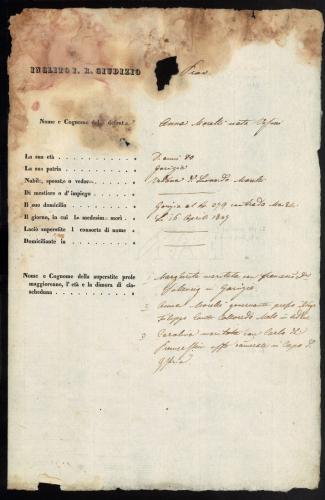 INCLITO I. R. GIUDIZIO
Nome e Cognome del defunto
Anna Morelli nata
La sua età
D'anni 80
La sua patria
Gorizia
Nubile, sposato o vedovo
vedova di Leonardo Morelli
Di mestiere o d'impiego
Il suo domicilio
Gorizia al N. 279 contrada
Il giorno, in cui la medesima morì
Li 16 Aprile 1849
Lasciò superstite l consorte di nome
Domiciliante in
Nome e Cognome della superstite prole
maggiorenne, l'età e la dimora di cia-
scheduna
1 Margherita maritata in
in Gorizia
2 Anna Morelli governante presso
Filippo Conte Colloredo
3 Carolina maritata con Carlo de
in Capo d'
Istria